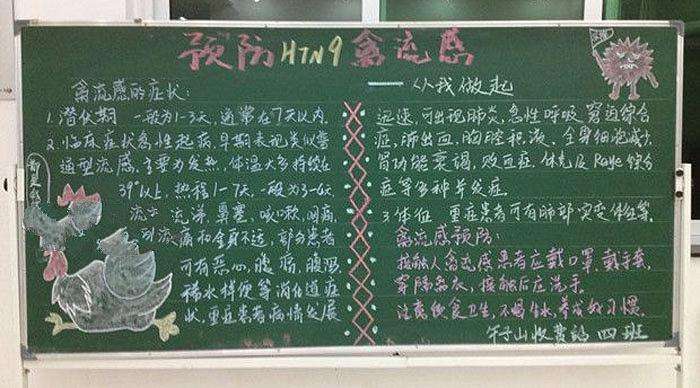 预防H7N9禽流感
——从我做起
禽流感的症状:
1.潜伏期 一般为1-3天,通常在7天以内.
2.临床症状急性起病,早期表现类似普
通型流感,主要为发热,体温大多持续在
39℃以上,热程1-7天,一般为3-4天
流涕,鼻塞,咳嗽,咽痛,
头痛和全身不适,部分患者
可有恶心,腹痛,腹泻
稀水样便等消化道症
状,重症患者病情发展
迅速,可出现肺炎,急性呼吸窘迫综合
症,肺出血,胸腔积液,全身细胞减少
肾功能衰竭,败血症,休克及Reye综合
症等多种并发症
3.体征 重症患者可有肺部实变体征等.
禽流感预防:
接触人禽流感患者应戴口罩,戴手套,
穿隔离衣,接触后应洗手.
注意饮食卫生,不喝生水,养成好习惯.
午子山收费站 四班